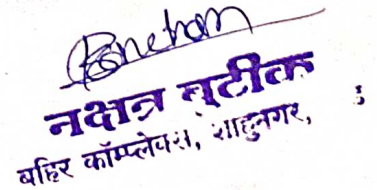 नक्षत्र बुटीक
बहिर कॉम्प्लेक्स, शाहुनगर,